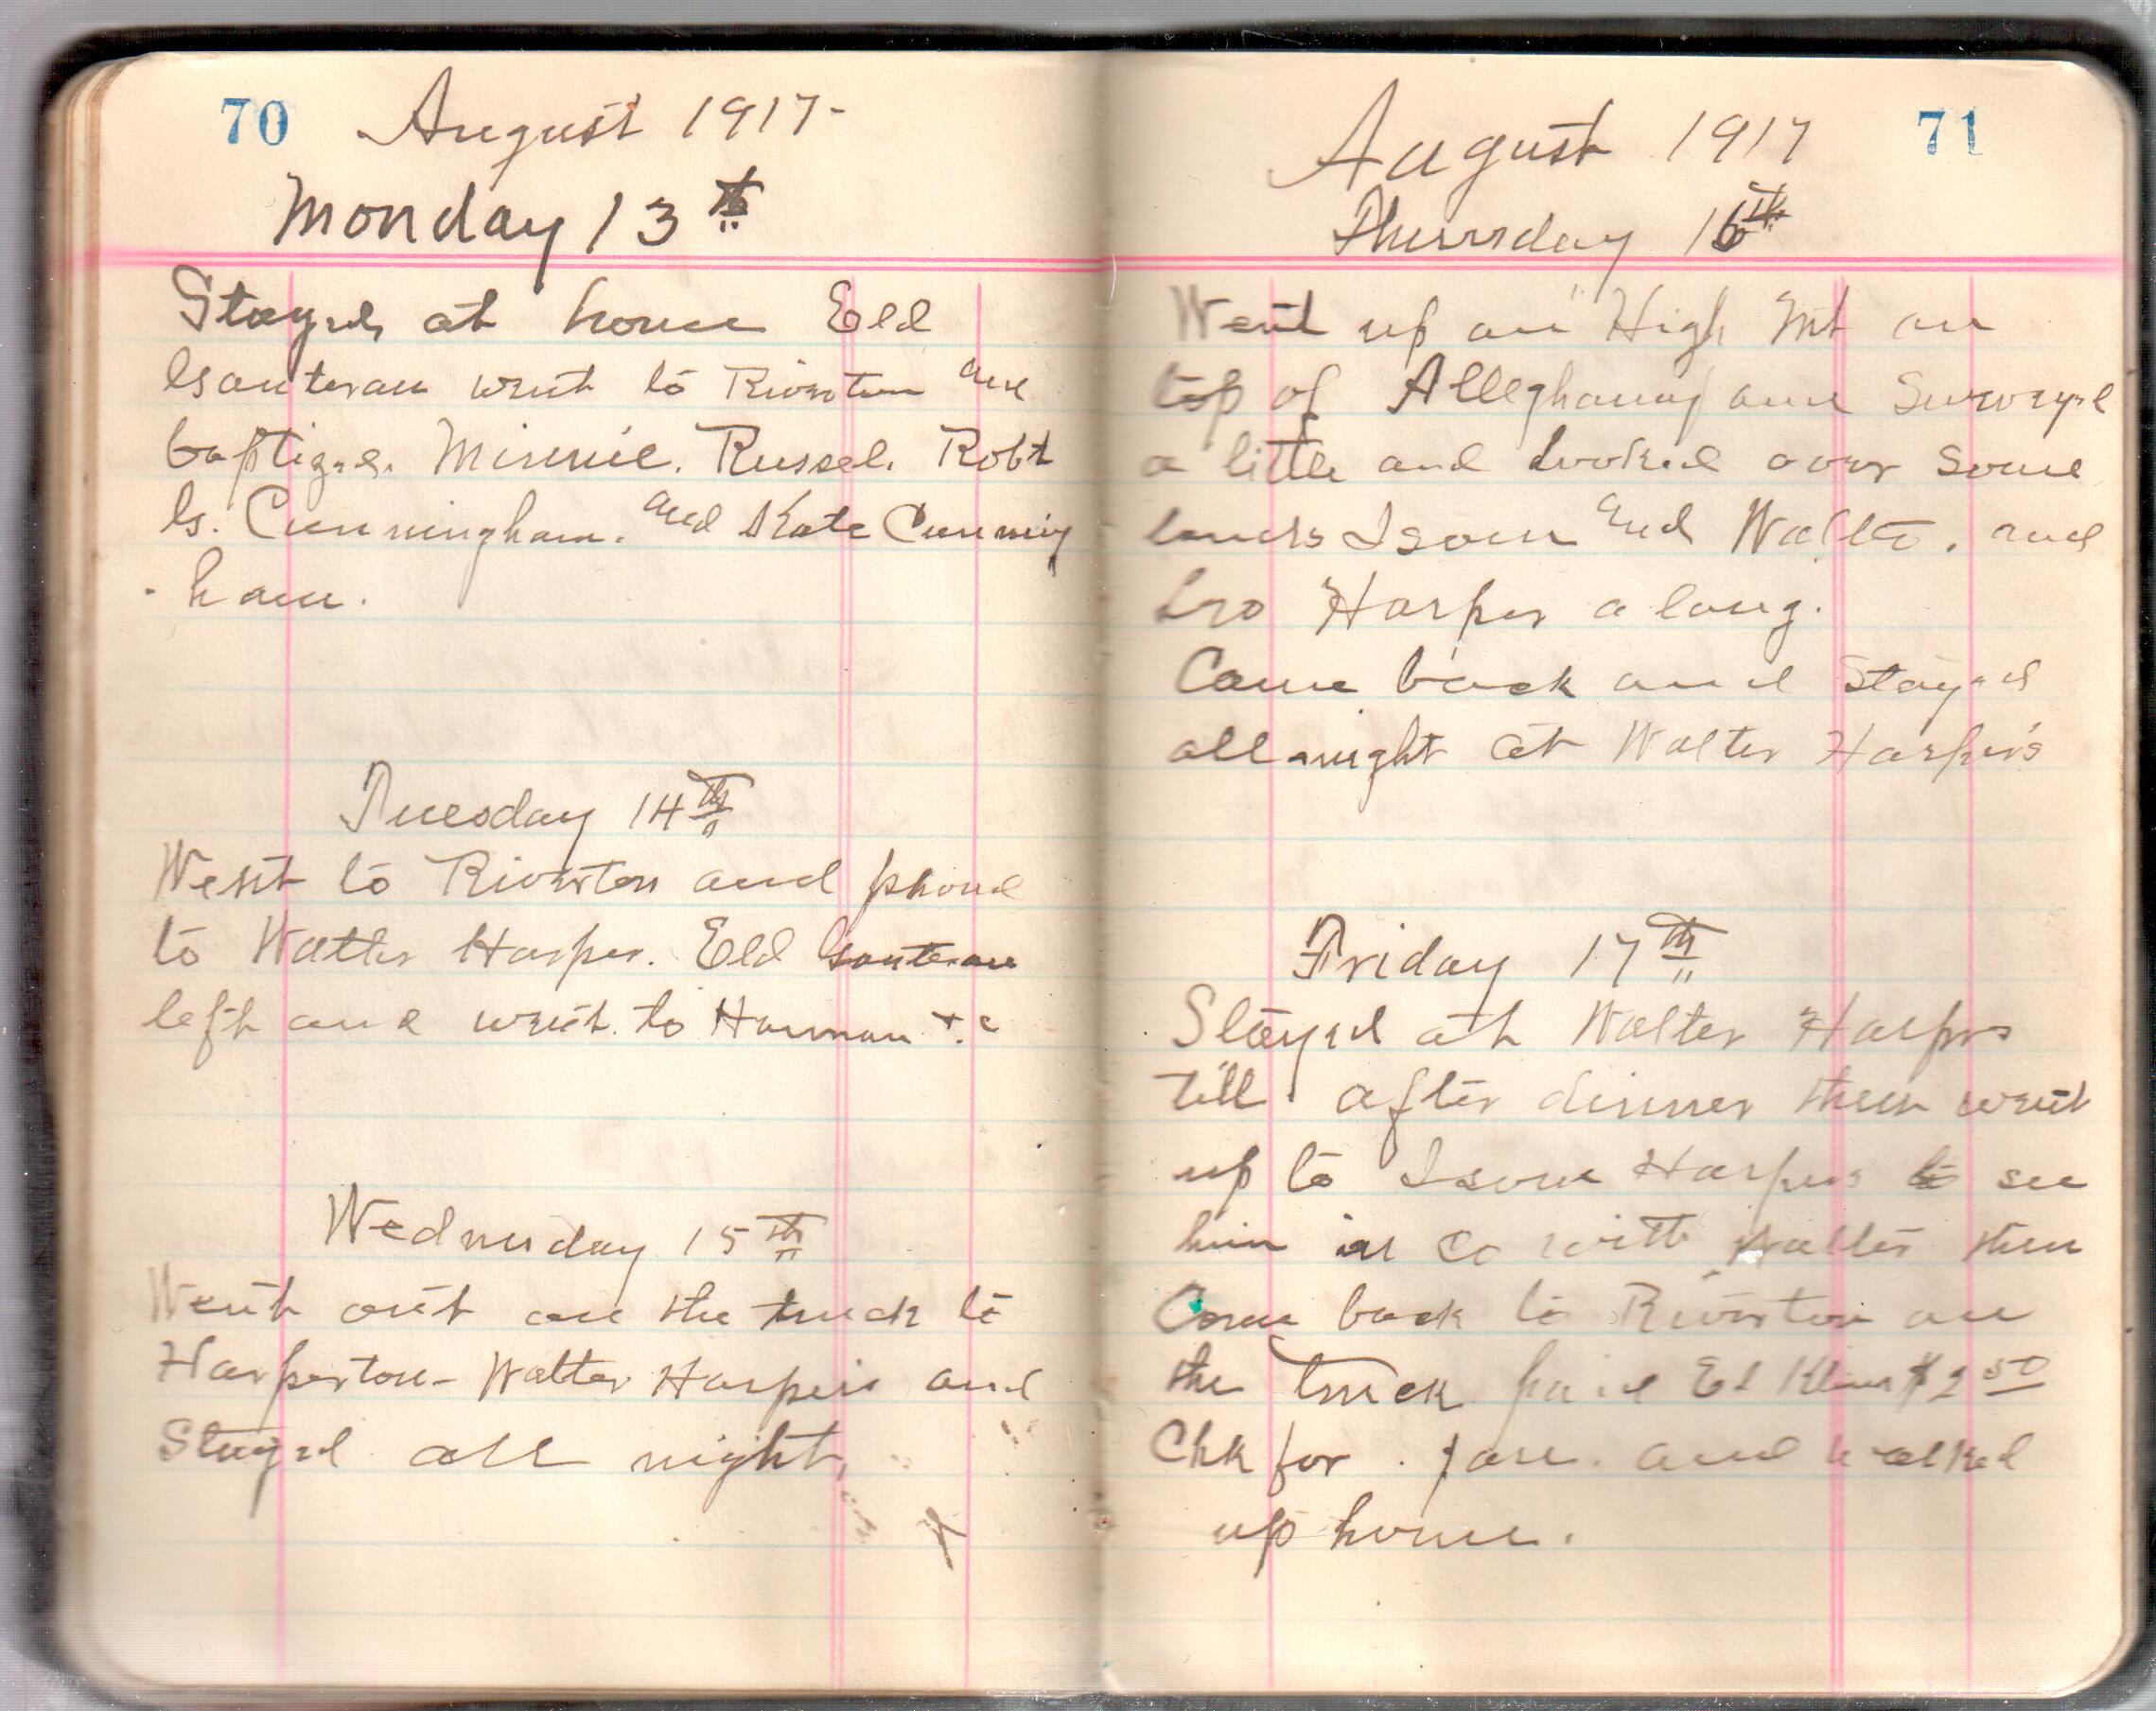 70 August 1917-
Monday 13th
Stayed at home Eld
went to Riverton and
baptized. Minnie. Russel. Robt
G. Cunningham. and Kate Cunning
- ham.
Tuesday 14th
Went to Riverton and phond
to Walter Harper. Eld
left and went to Harman &c
Wednesday 15th
Went out on the truck to
Harperton - Walter Harpers and
Stayed all night,
August 1917 71
Thursday 16th
Went up on "High Mt on
top of Alleghany and Surveyed
a little and looked over some
lands Isom and Walter. and
Harper along.
Came back and Stayed
all night at Walter Harper's
Friday 17th
Stayed at Walter Harpers
till after dinner then went
up to Isom Harpers to see
him in Co with Walter then
Come back to Riverton on
the truck paid Ed $2 50
Chk for fare. and walked
up home.